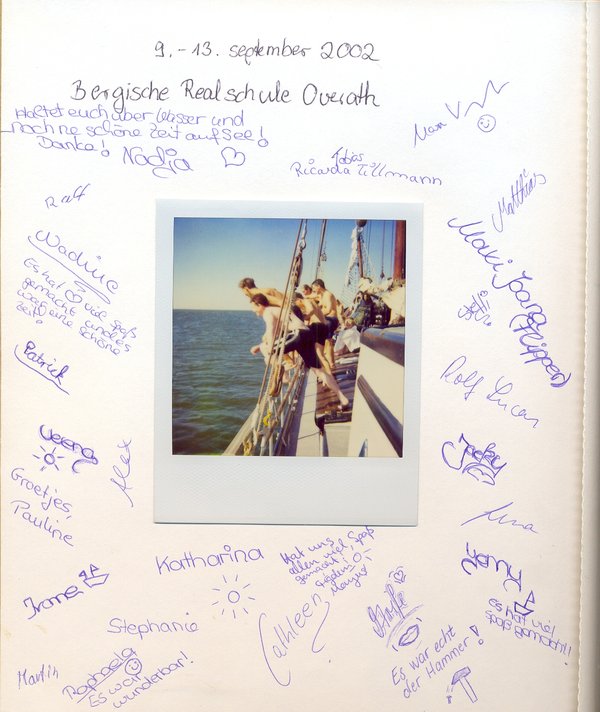 9.-13. september 2002
Bergische Realschule Overath
Haltet euch über Wasser und
noch ne schöne Zeit auf See!
Danke! Nadja
Tobias
Ricarda Tillmann
Max
Ralf
Matthias
Nadine
Es hat viel spaß
gemacht und es
war eine schöne
zeit!
Maxi Joana
(Flipper)
Patrick
Rolf Lucas
Verena
Alex
Jacky
Groetjes,
Pauline
Lena
Katharina
Hat uns
allen viel Spaß
gemacht!
Yvonne
es hat viel
spaß gemacht!!
Stephanie
Cathleen
Steffi
Es war echt
der Hammer!
Martin
Raphaela
Es war
wunderbar!